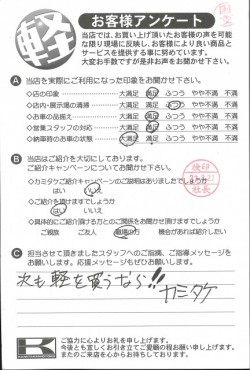 軽
お客様アンケート
当店では、お買い上げ頂いたお客様の声を可能
な限り現場に反映し、お客様により良い商品と
サービスを提供する事に努めています。
大変お手数ですが是非お声をお聞かせ下さい。
A 当店を実際にご利用になった印象をお聞かせ下さい。
◇店の印象 大満足 満足 ふつう やや不満 不満
◇店内・展示場の清掃 大満足 満足 ふつう やや不満 不満
◇お車の品揃え 大満足 満足 ふつう やや不満 不満
◇営業スタッフの対応 大満足 満足 ふつう やや不満 不満
◇納車時のお車の状態 大満足 満足 ふつう やや不満 不満
B 当店はご紹介を大切にしております。
ご紹介キャンペーンについてお聞かせ下さい。
◇カミタケご紹介キャンペーンのご説明はありましたでしょうか
はい いいえ
◇ご紹介を頂けますでしょうか
はい いいえ
◇具体的にご紹介頂ける方との関係をお聞かせ頂けますでしょうか
ご親族 ご友人 職場の方 機会があれば紹介したい
検印
社長
C 担当させて頂きましたスタッフへのご指摘、ご指導メッセージを
お願いします。応援メッセージもぜひお願いします。
次も軽を買うなら!!
カミタケ
K
ご協力に心よりお礼を申し上げます。
今後とも宜しくお引き立てご愛顧の程お願い申し上げます。
またのご来店を心からお待ちしております。